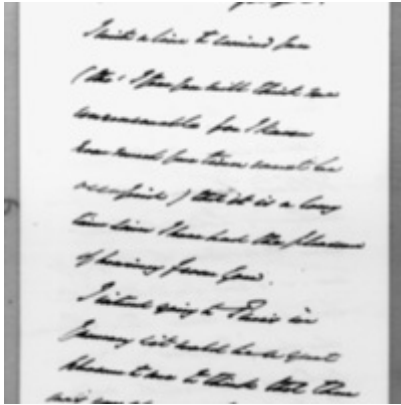 I write a line to remind you
(tho' I fear you will think me
unreasonable for I know
how much your time must be
occupied) that it is a long
time since I have had the pleasure
of hearing from you.
I intend going to Paris in
January but it would be a great
pleasure to me to think that there